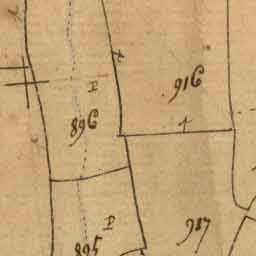 P
916
896
P
917
895